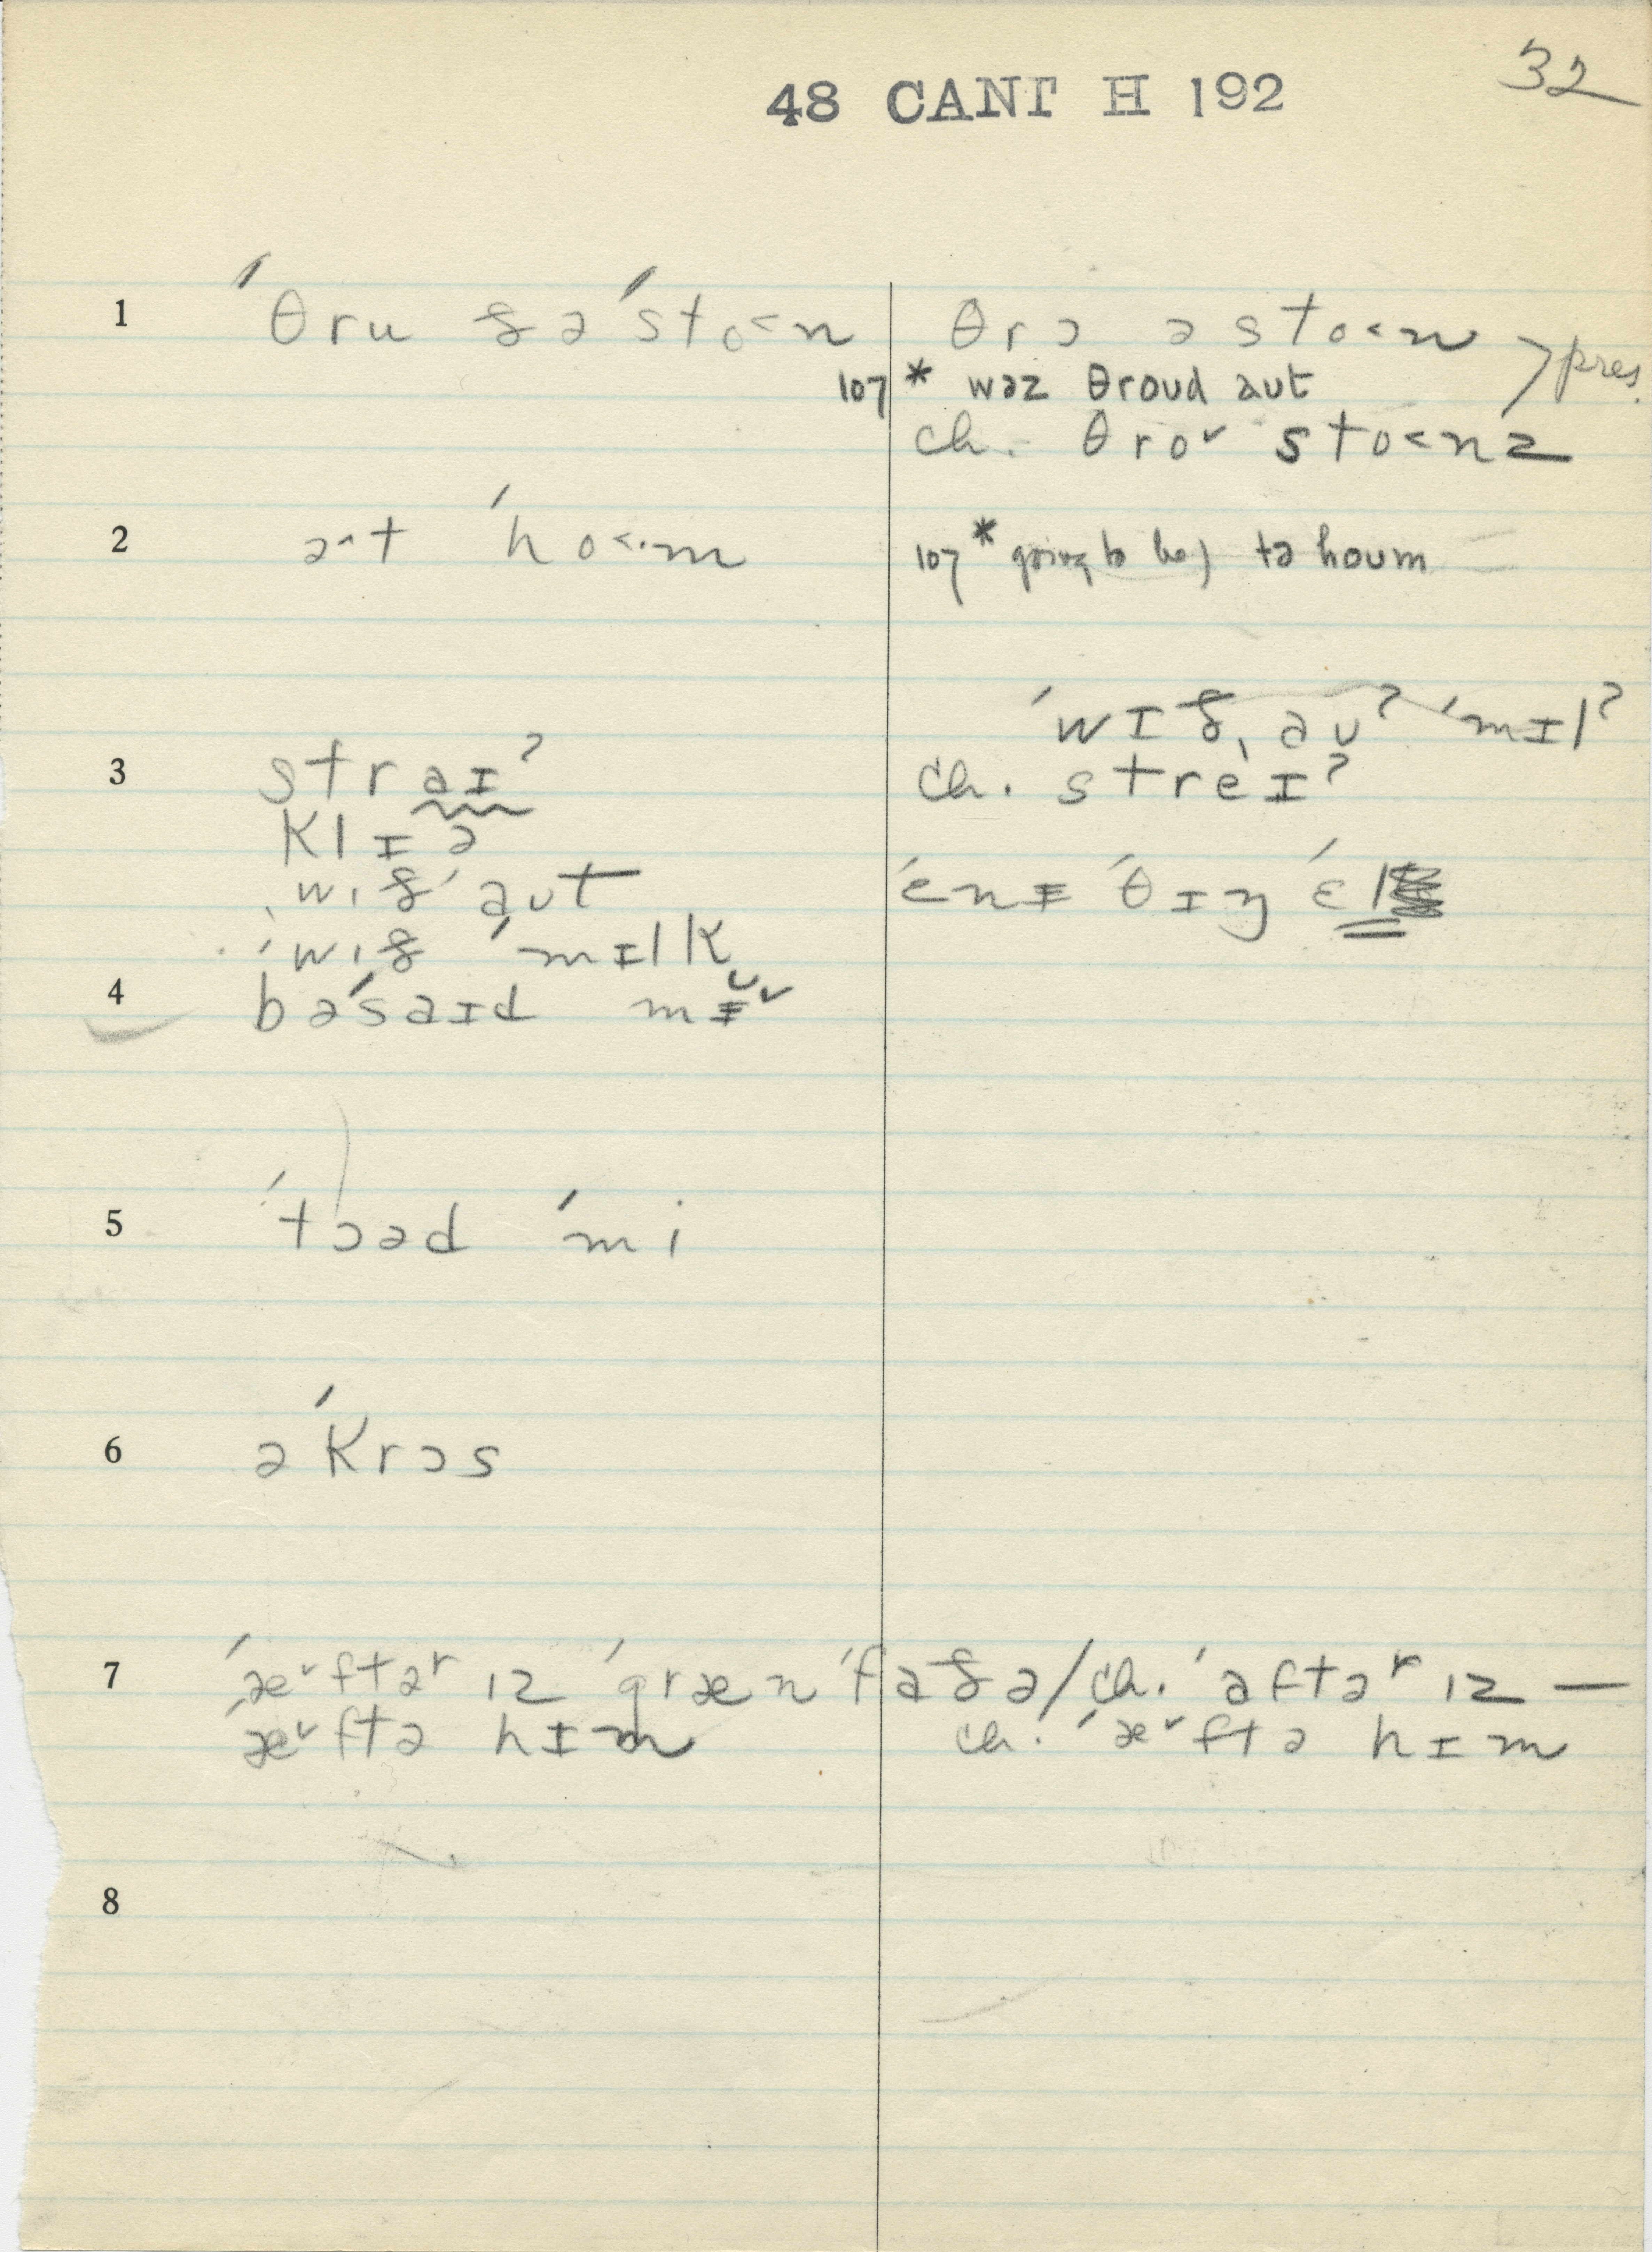 32
48 CANT H 192
1 ˈθru ðə ˈsto<n θrɔ ə sto<n > pres.
107 * wəz θroud aut
ch. θroˇ sto<nz
2 əˑt ˈho<·m 107 * going to be) tə houm
ˈwɪð ˌaʊʔ ˈmɪlʔ
3 straɪʔ ch. streɪʔ
klɪə
ˌwɪð ˈaʊt ˈɛnɪ ˈθɪŋ ˈɛl
ˈwɪð ˈmɪlk
4 bəˈsaɪd mɪˇ
5 ˈtɔəd ˈmi
6 əˈkrɔs
7 ˈæˇftəʳ ɪz ˈgræn ˈfaðə/ch. ˈaftəʳ ɪz —
ˈæˇftə hɪm ch. ˈæˇftə hɪm
8